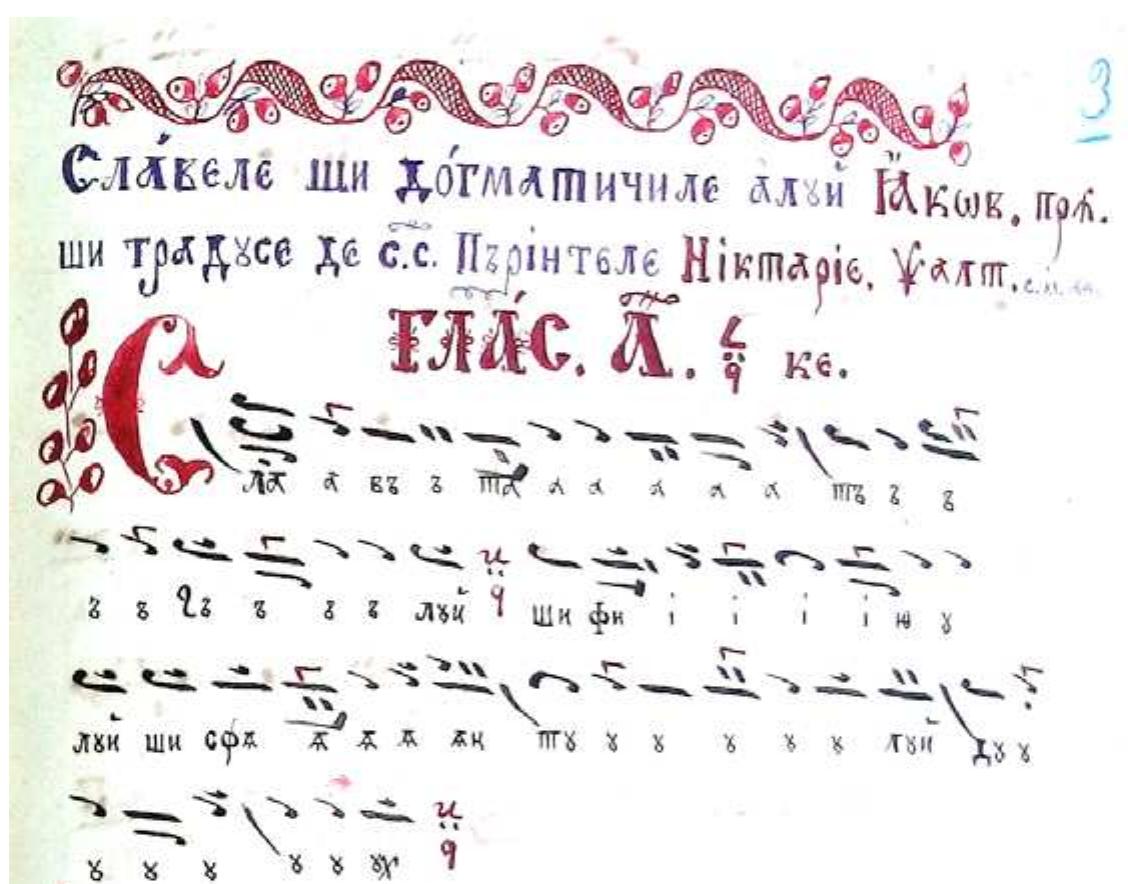 3
Сла́веле ши до́гматичиле алꙋй Іа́кѡв. прѧ.
ши традꙋсе де с.с. Пърінтеле Ніктаріе. Ѱалт.
ГЛА́С. А҃. ҁ ке.
Сла а въ ъ та а а а а а тъ ъ ъ
ъ ъ ъ ъ ъ лꙋй ҁ ши фи і і і і ю ꙋ
лꙋй ши сфѫ ѫ ѫ ѫ ѫн тꙋ ꙋ ꙋ ꙋ ꙋ ꙋ лꙋй дꙋ ꙋ
ꙋ ꙋ ꙋ ꙋ ꙋ ꙋх ҁ